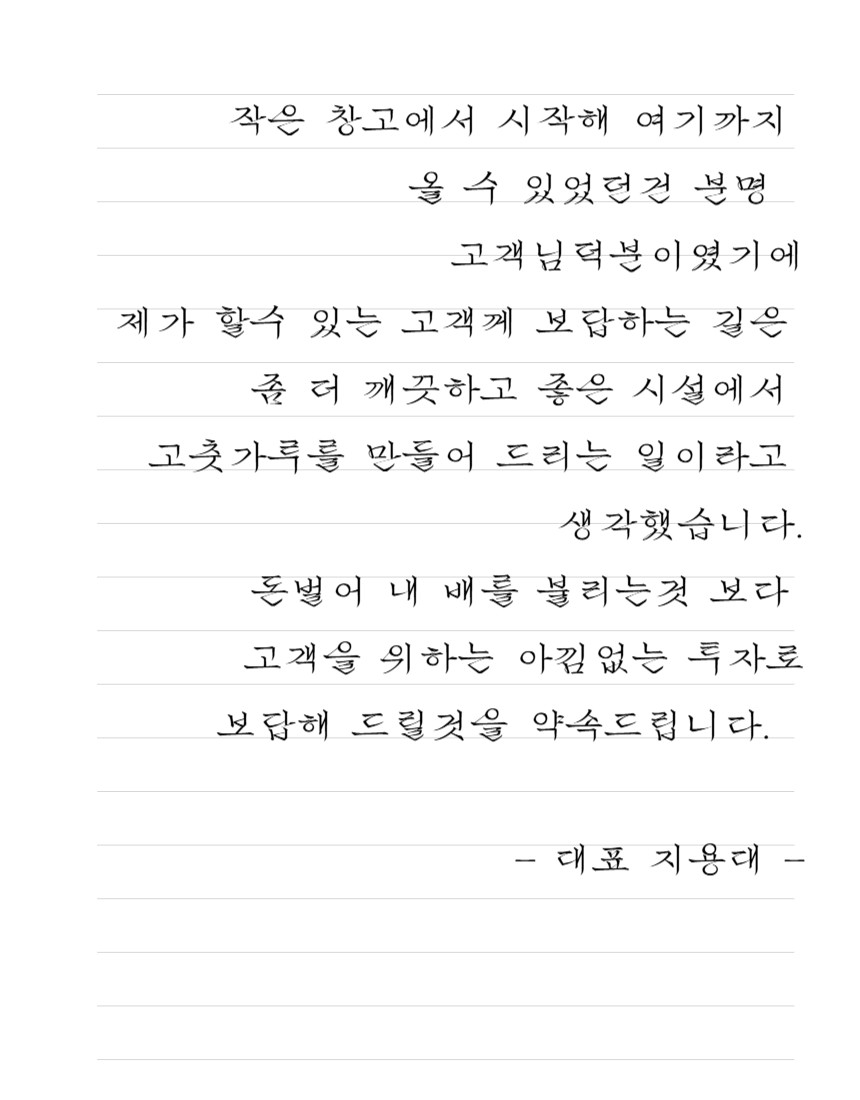 작은 창고에서 시작해 여기까지
올 수 있었던건 분명
고객님덕분이였기에
제가 할수 있는 고객께 보답하는 길은
좀 더 깨끗하고 좋은 시설에서
고춧가루를 만들어 드리는 일이라고
생각했습니다.
돈벌어 내 배를 불리는것 보다
고객을 위하는 아낌없는 투자로
보답해 드릴것을 약속드립니다.
- 대표 지용대 -